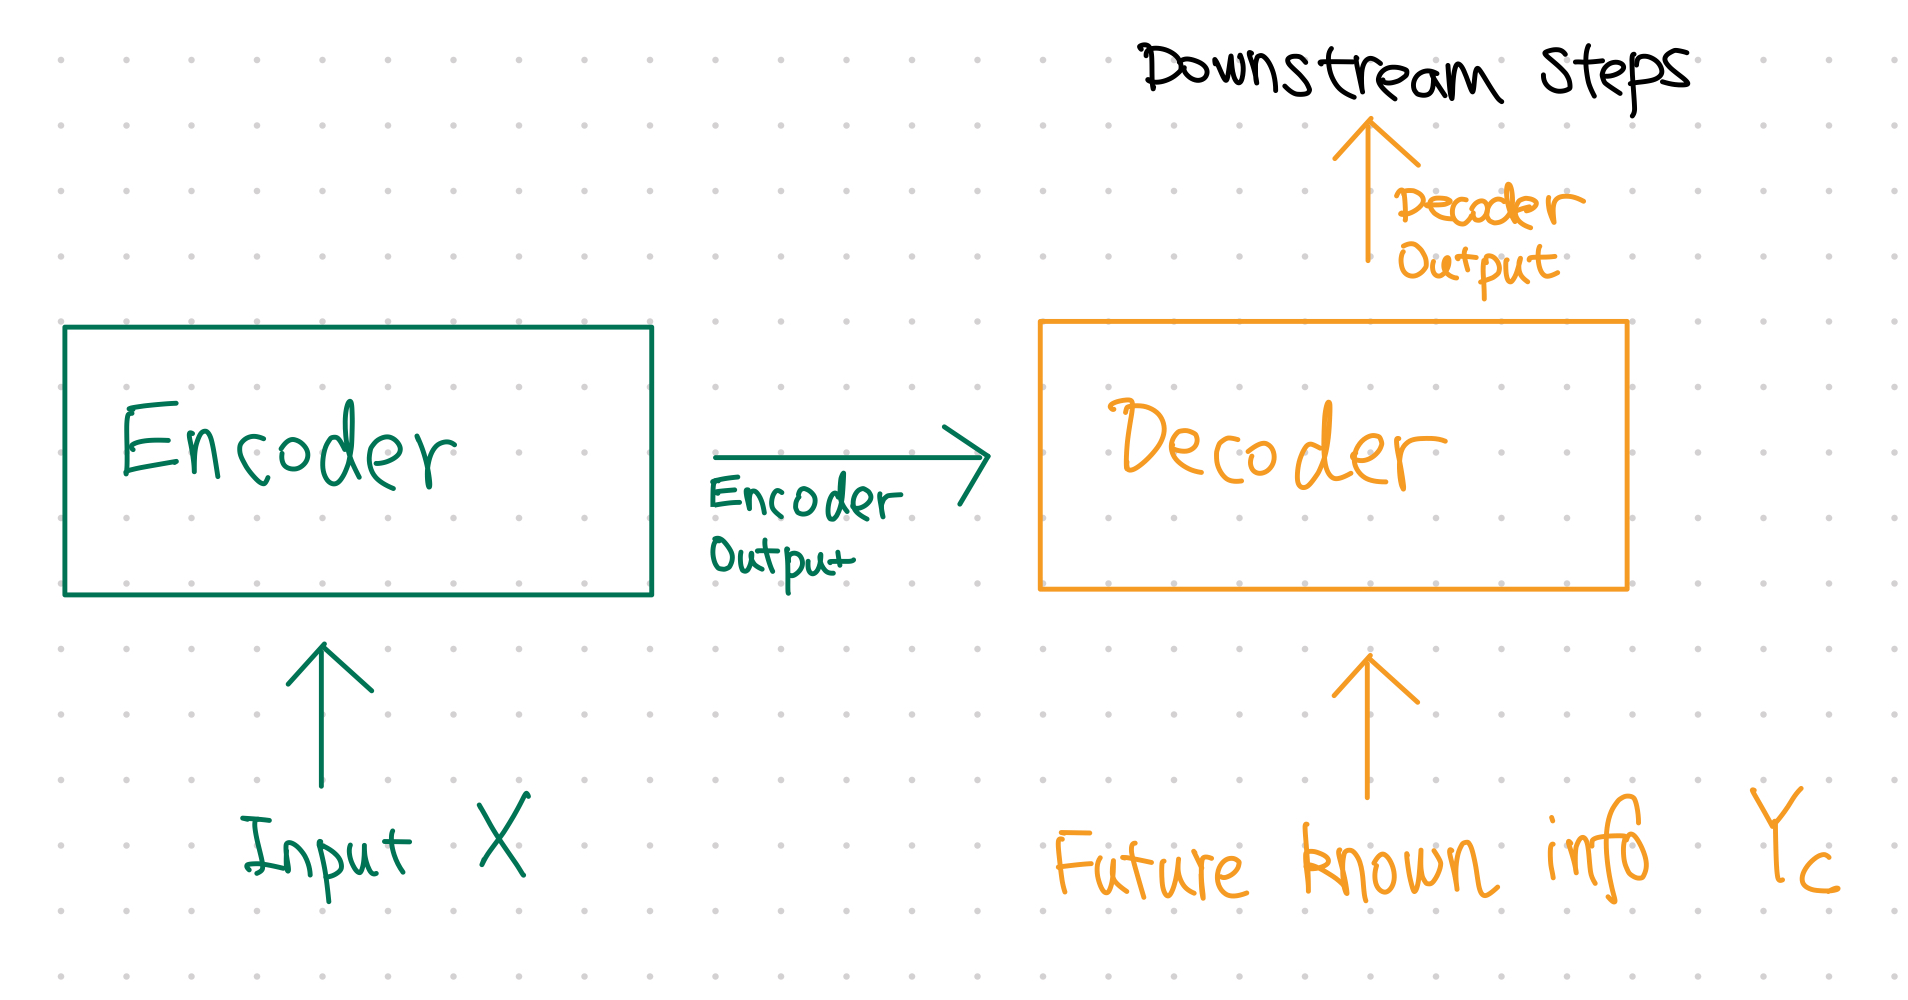 Downstream Steps
Decoder
Output
Encoder
Encoder
Output
Decoder
Input X
Future known info Yc